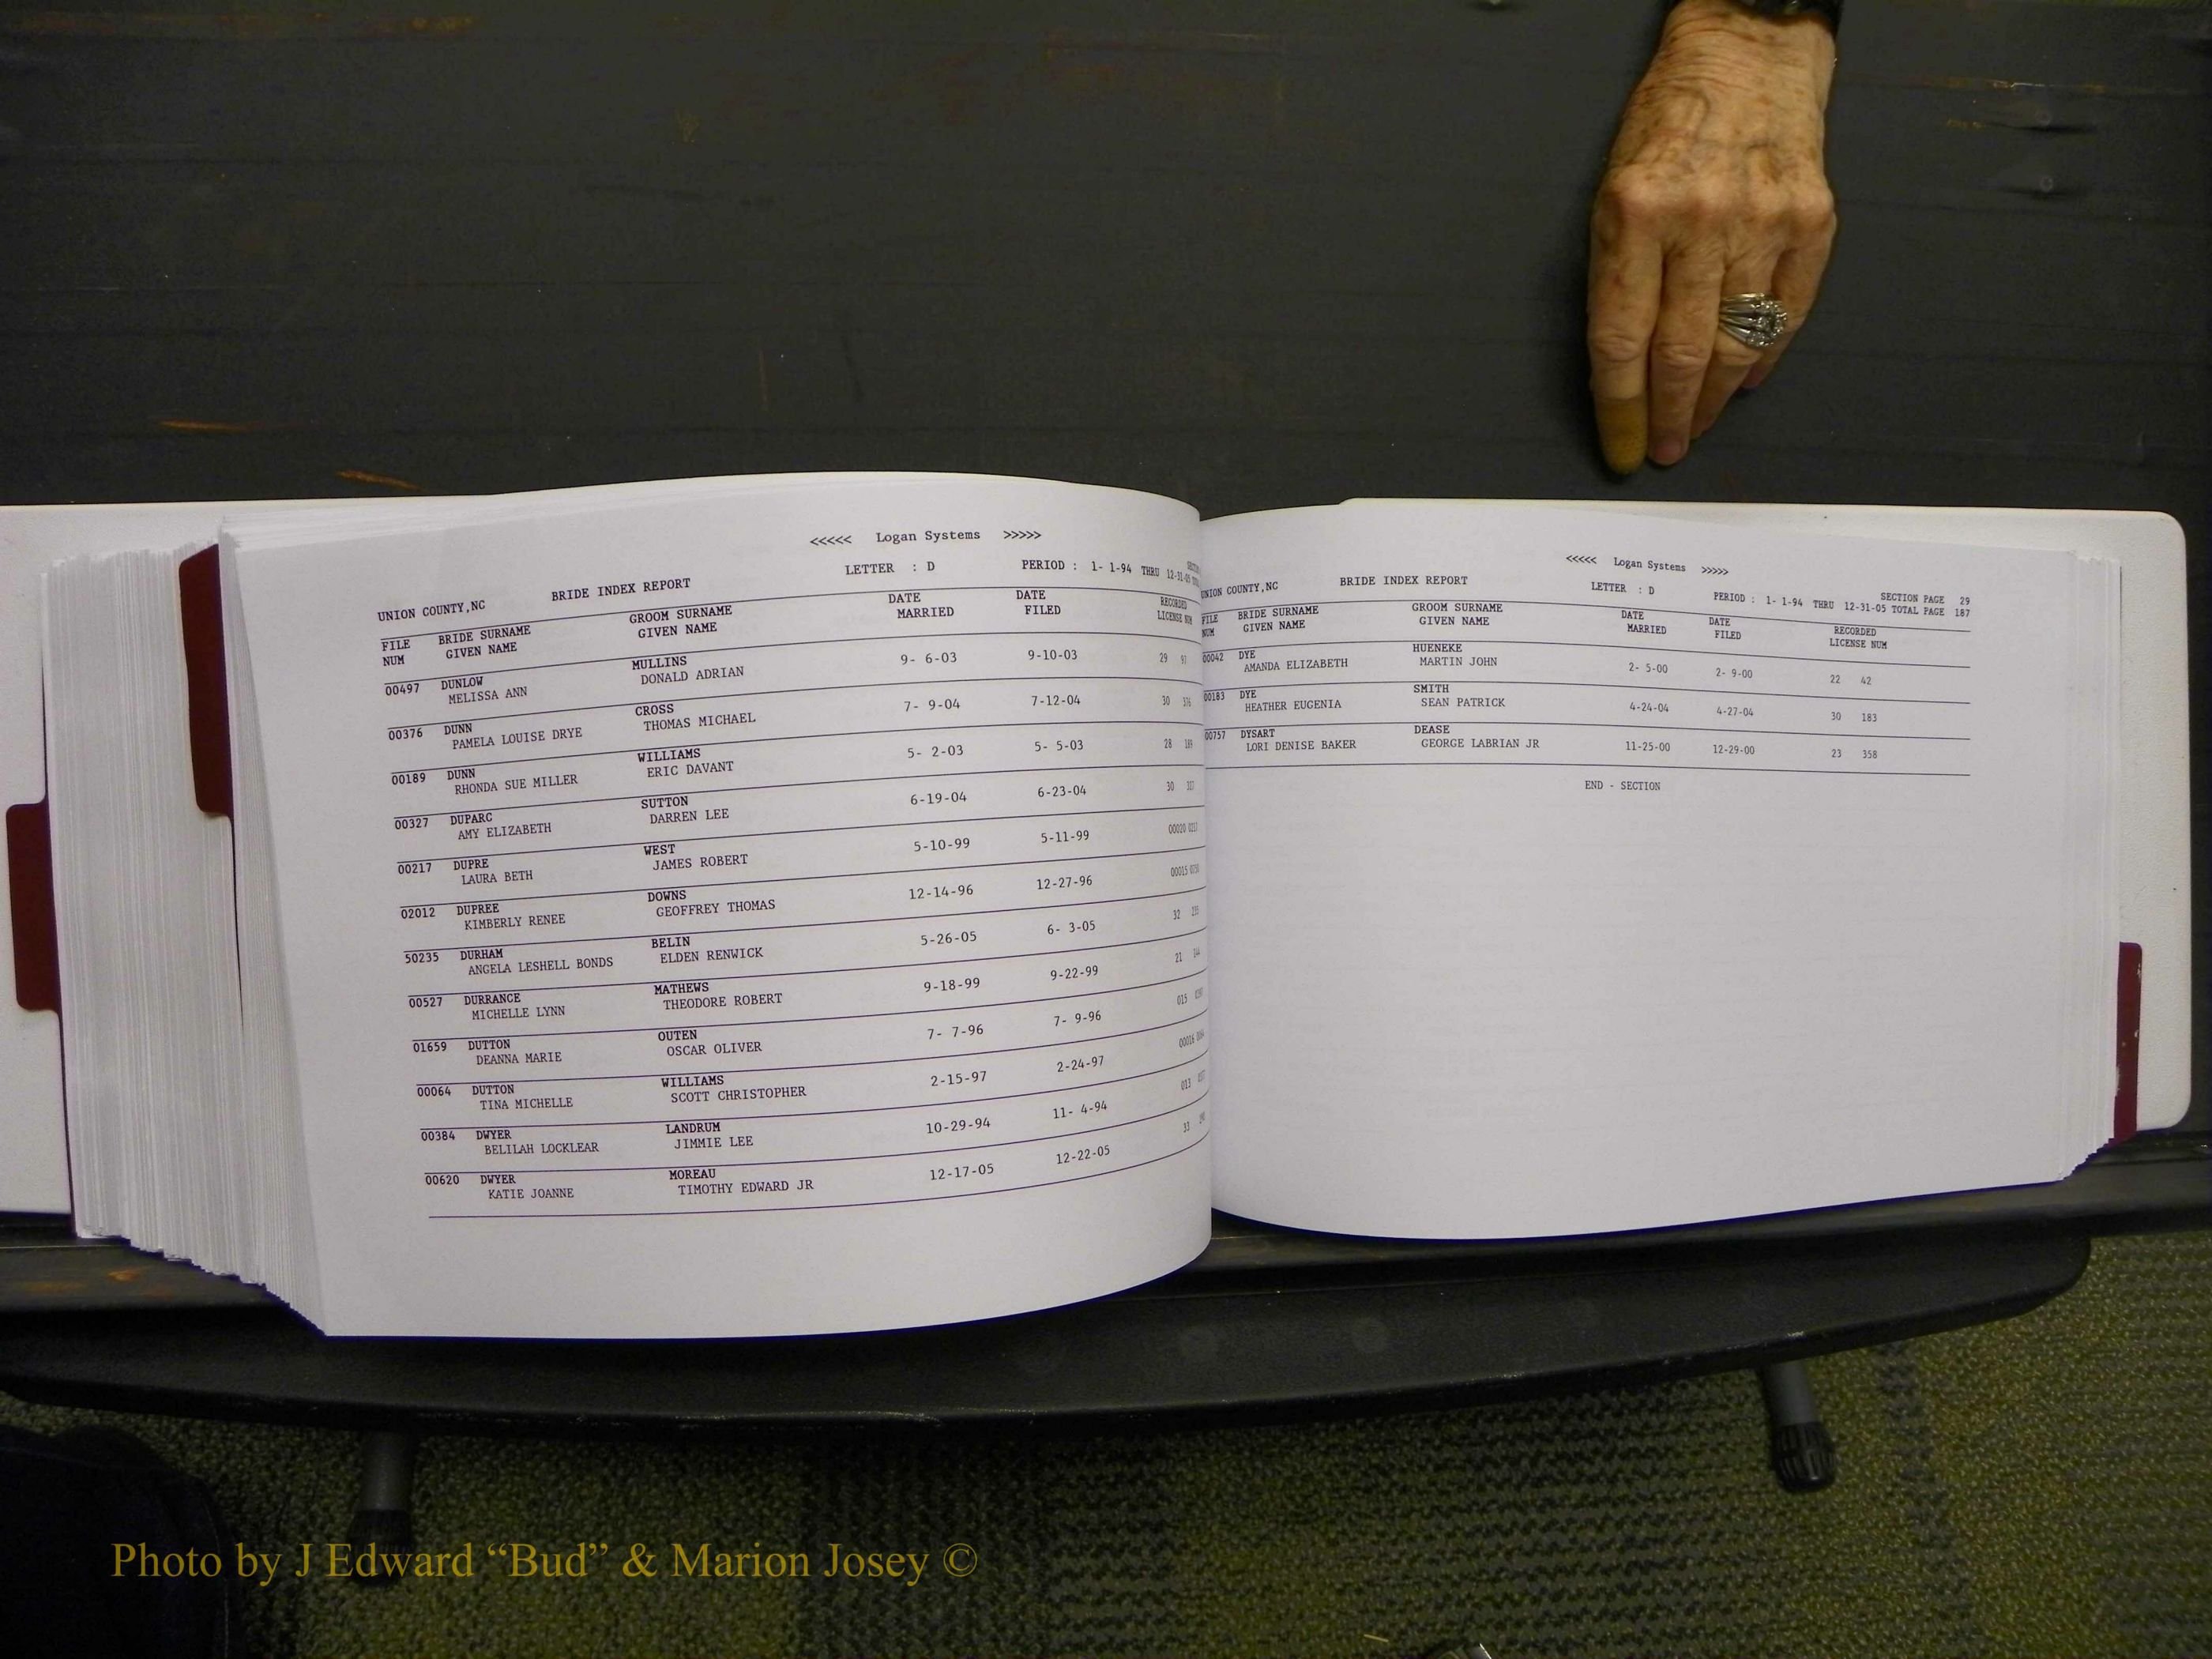 <<<<< Logan Systems >>>>>
UNION COUNTY,NC BRIDE INDEX REPORT LETTER : D PERIOD : 1- 1-94 THRU 12-31-05
FILE BRIDE SURNAME GROOM SURNAME DATE DATE RECORDED
NUM GIVEN NAME GIVEN NAME MARRIED FILED LICENSE NUM
00497 DUNLOW MULLINS 9- 6-03 9-10-03 29 97
MELISSA ANN DONALD ADRIAN
00376 DUNN CROSS 7- 9-04 7-12-04 30 376
PAMELA LOUISE DRYE THOMAS MICHAEL
00189 DUNN WILLIAMS 5- 2-03 5- 5-03 28 189
RHONDA SUE MILLER ERIC DAVANT
00327 DUPARC SUTTON 6-19-04 6-23-04 30
AMY ELIZABETH DARREN LEE
00217 DUPRE WEST 5-10-99 5-11-99 00020 0217
LAURA BETH JAMES ROBERT
02012 DUPREE DOWNS 12-14-96 12-27-96 00015
KIMBERLY RENEE GEOFFREY THOMAS
50235 DURHAM BELIN 5-26-05 6- 3-05 32 235
ANGELA LESHELL BONDS ELDEN RENWICK
00527 DURRANCE MATHEWS 9-18-99 9-22-99 21
MICHELLE LYNN THEODORE ROBERT
01659 DUTTON OUTEN 7- 7-96 7- 9-96 015
DEANNA MARIE OSCAR OLIVER
00064 DUTTON WILLIAMS 2-15-97 2-24-97 00016
TINA MICHELLE SCOTT CHRISTOPHER
00384 DWYER LANDRUM 10-29-94 11- 4-94 013
BELILAH LOCKLEAR JIMMIE LEE
00620 DWYER MOREAU 12-17-05 12-22-05 33
KATIE JOANNE TIMOTHY EDWARD JR
<<<<< Logan Systems >>>>>
UNION COUNTY,NC BRIDE INDEX REPORT LETTER : D SECTION PAGE 29
PERIOD : 1- 1-94 THRU 12-31-05 TOTAL PAGE 187
FILE BRIDE SURNAME GROOM SURNAME DATE DATE RECORDED
NUM GIVEN NAME GIVEN NAME MARRIED FILED LICENSE NUM
00042 DYE HUENEKE 2- 5-00 2- 9-00 22 42
AMANDA ELIZABETH MARTIN JOHN
00183 DYE SMITH 4-24-04 4-27-04 30 183
HEATHER EUGENIA SEAN PATRICK
00757 DYSART DEASE 11-25-00 12-29-00 23 358
LORI DENISE BAKER GEORGE LABRIAN JR
END - SECTION
Photo by J Edward “Bud” & Marion Josey ©